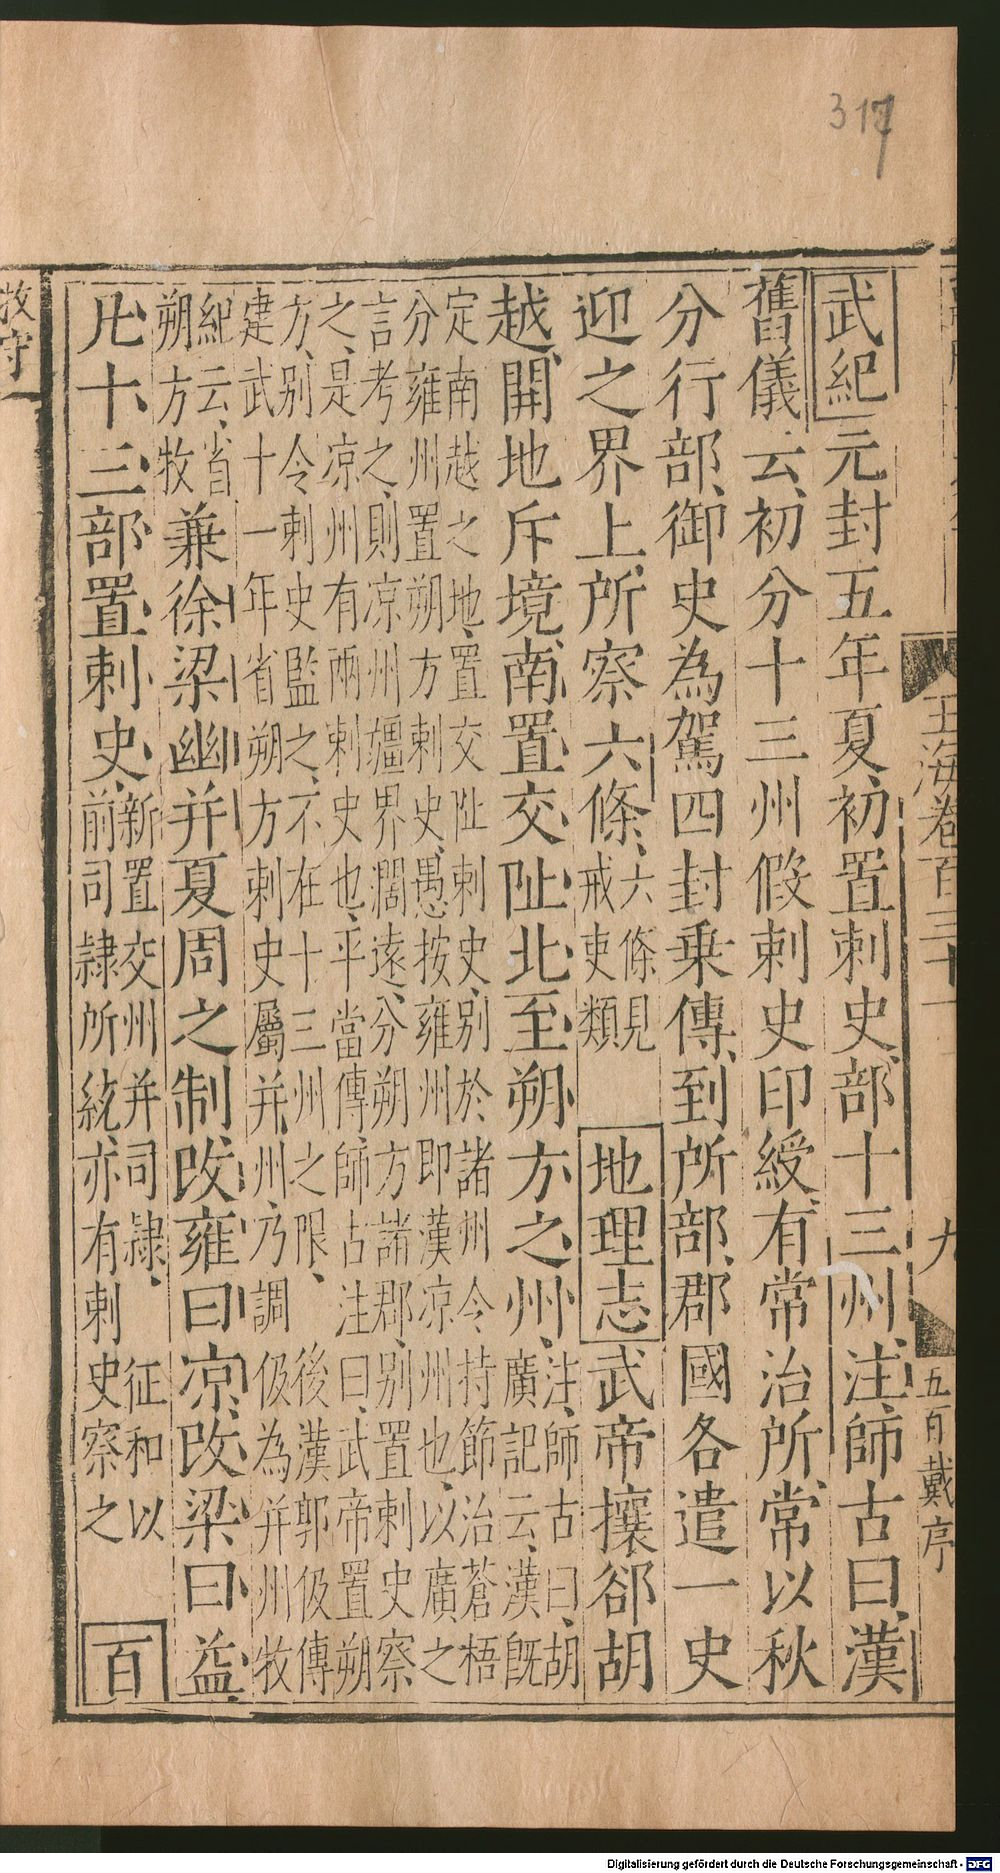 317
武紀元封五年夏初置刺史部十三州注師古曰漢
舊儀云初分十三州假刺史印綬有常治所常以秋
分行部御史為駕四封乗傳到所部郡國各遣一史
迎之界上所察六條六條見
戒吏類地理志武帝攘郤胡
越開地斥境南置交阯北至朔方之州注師古曰胡
廣記云漢既
定南越之地置交阯刺史别於諸州令持節治蒼梧
分雍州置朔方刺史愚按雍州即漢凉州也以廣之
言考之則凉州疆界濶遠分朔方諸郡别置刺史察
之是凉州有兩刺史也平當傳師古注曰武帝置朔
方别令刺史監之不在十三州之限後漢郭伋傳
建武十一年省朔方刺史屬并州乃調伋為并州牧
紀云省
朔方牧兼徐梁幽并夏周之制改雍曰凉改梁曰益
凡十三部置刺史新置交州并司隸征和以
前司隸所統亦有刺史察之百
玉海卷百三十一
九
五百戴序
牧守
Digitalisierung gefördert durch die Deutsche Forschungsgemeinschaft - DFG